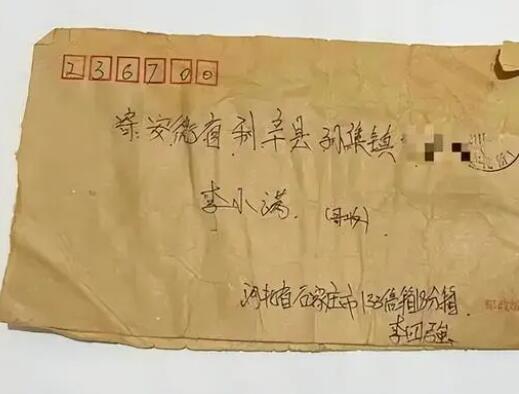 236700
安徽省利辛县孙集镇
李小满 (哥收)
河北省石家庄市133信箱18分箱
李四强